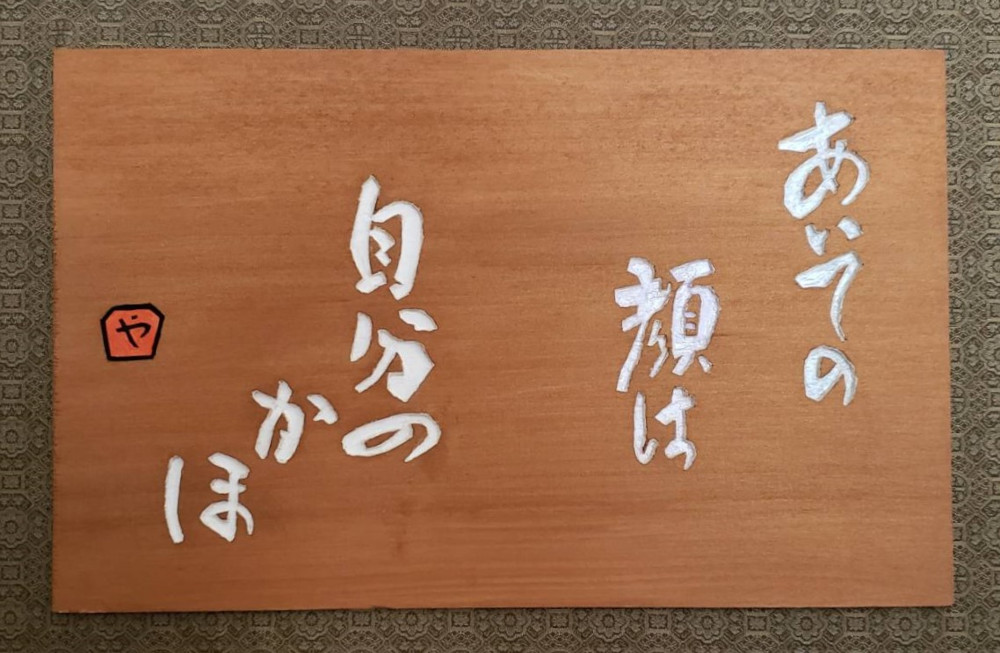 あいての
顔は
自分の
かほ
や